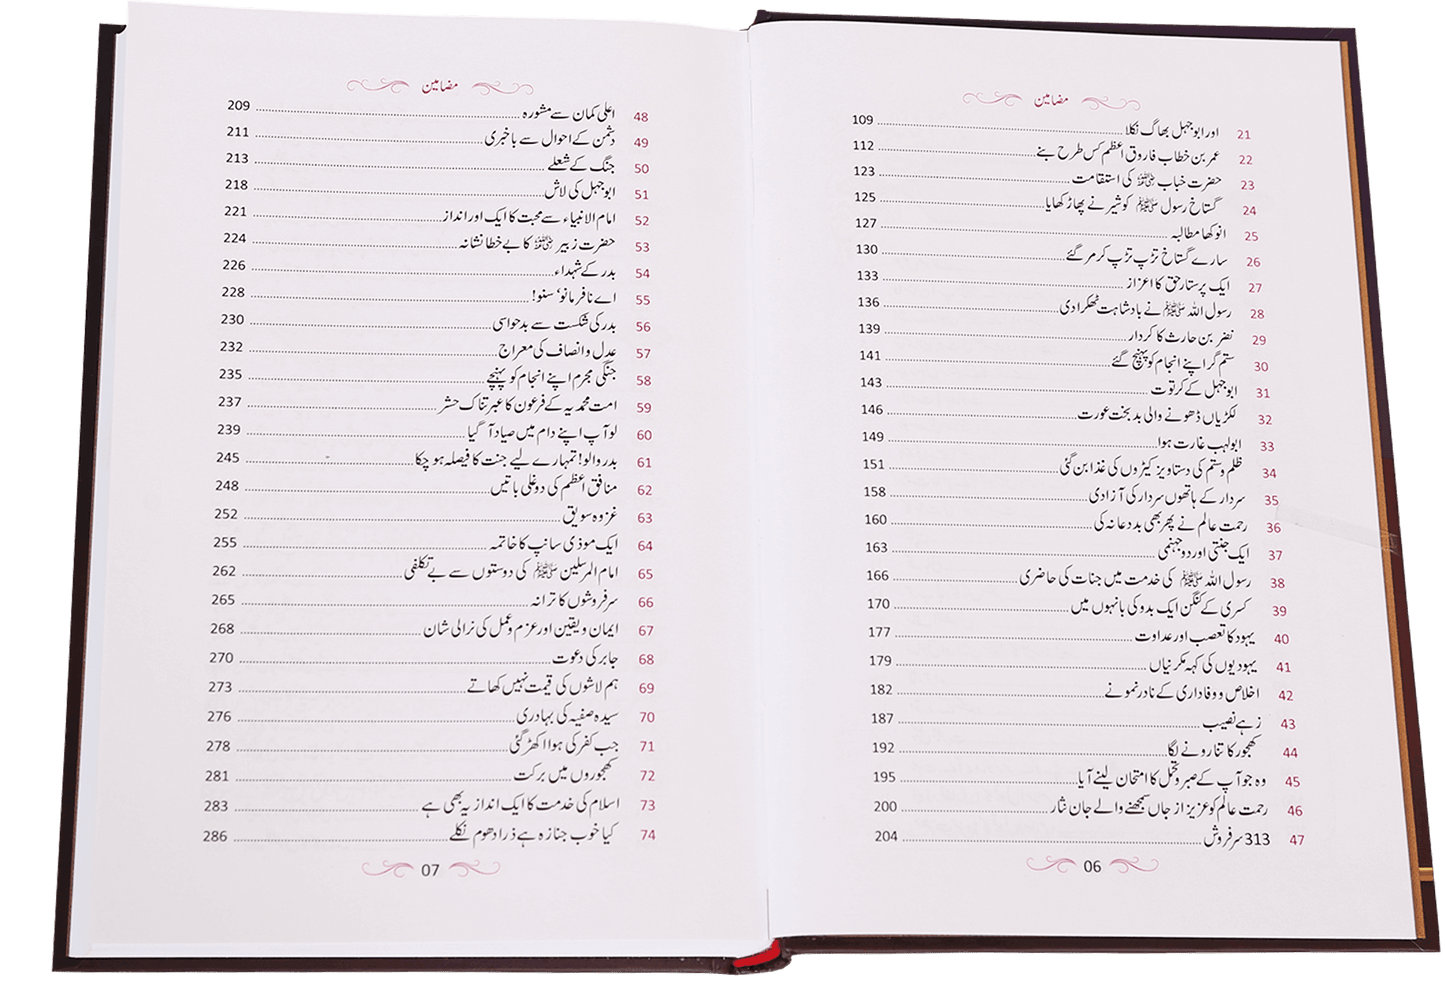 مضامین
21 اور ابوجہل بھاگ نکلا 109
22 عمر بن خطاب فاروق اعظم کس طرح بنے 112
23 حضرت خباب رضی اللہ عنہ کی استقامت 123
24 گستاخ رسول ﷺ کو شیر نے پھاڑ کھایا 125
25 انوکھا مطالبہ 127
26 سارے گستاخ تڑپ تڑپ کر مر گئے 130
27 ایک پرستار حق کا اعزاز 133
28 رسول اللہ ﷺ نے بادشاہت ٹھکرا دی 136
29 نضر بن حارث کا کردار 139
30 ستم گر اپنے انجام کو پہنچ گئے 141
31 ابوجہل کے کرتوت 143
32 لکڑیاں ڈھونے والی بد بخت عورت 146
33 ابولہب غارت ہوا 149
34 ظلم و ستم کی دستاویز کیڑوں کی غذا بن گئی 151
35 سردار کے ہاتھوں سردار کی آزادی 158
36 رحمت عالم نے پھر بھی بددعا نہ کی 160
37 ایک جنتی اور دو جہنمی 163
38 رسول اللہ ﷺ کی خدمت میں جنات کی حاضری 166
39 کسریٰ کے کنگن ایک بدو کی بانہوں میں 170
40 یہود کا تعصب اور عداوت 177
41 یہودیوں کی کہہ مکرنیاں 179
42 اخلاص و وفاداری کے نادر نمونے 182
43 زہے نصیب 187
44 کھجور کا تنا رونے لگا 192
45 وہ جو آپ کے صبر و تحمل کا امتحان لینے آیا 195
46 رحمت عالم کو عزیز از جاں سمجھنے والے جان نثار 200
47 313 سرفروش 204
06
مضامین
48 اعلی کمان سے مشورہ 209
49 دشمن کے احوال سے باخبری 211
50 جنگ کے شعلے 213
51 ابوجہل کی لاش 218
52 امام الانبیاء سے محبت کا ایک اور انداز 221
53 حضرت زبیر رضی اللہ عنہ کا بے خطا نشانہ 224
54 بدر کے شہداء 226
55 اے نافرمانو‘ سنو! 228
56 بدر کی شکست سے بدحواسی 230
57 عدل و انصاف کی معراج 232
58 جنگی مجرم اپنے انجام کو پہنچے 235
59 امت محمدیہ کے فرعون کا عبرتناک حشر 237
60 لو آپ اپنے دام میں صیاد آ گیا 239
61 بدر والو! تمہارے لیے جنت کا فیصلہ ہو چکا 245
62 منافق اعظم کی دوغلی باتیں 248
63 غزوہ سویق 252
64 ایک موذی سانپ کا خاتمہ 255
65 امام المرسلین ﷺ کی دوستوں سے بے تکلفی 262
66 سرفروشوں کا ترانہ 265
67 ایمان و یقین اور عزم و عمل کی نرالی شان 268
68 جابر کی دعوت 270
69 ہم لاشوں کی قیمت نہیں کھاتے 273
70 سیدہ صفیہ کی بہادری 276
71 جب کفر کی ہوا اکھڑ گئی 278
72 کھجوروں میں برکت 281
73 اسلام کی خدمت کا ایک انداز یہ بھی ہے 283
74 کیا خوب جنازہ ہے ذرا دھوم نکلے 286
07